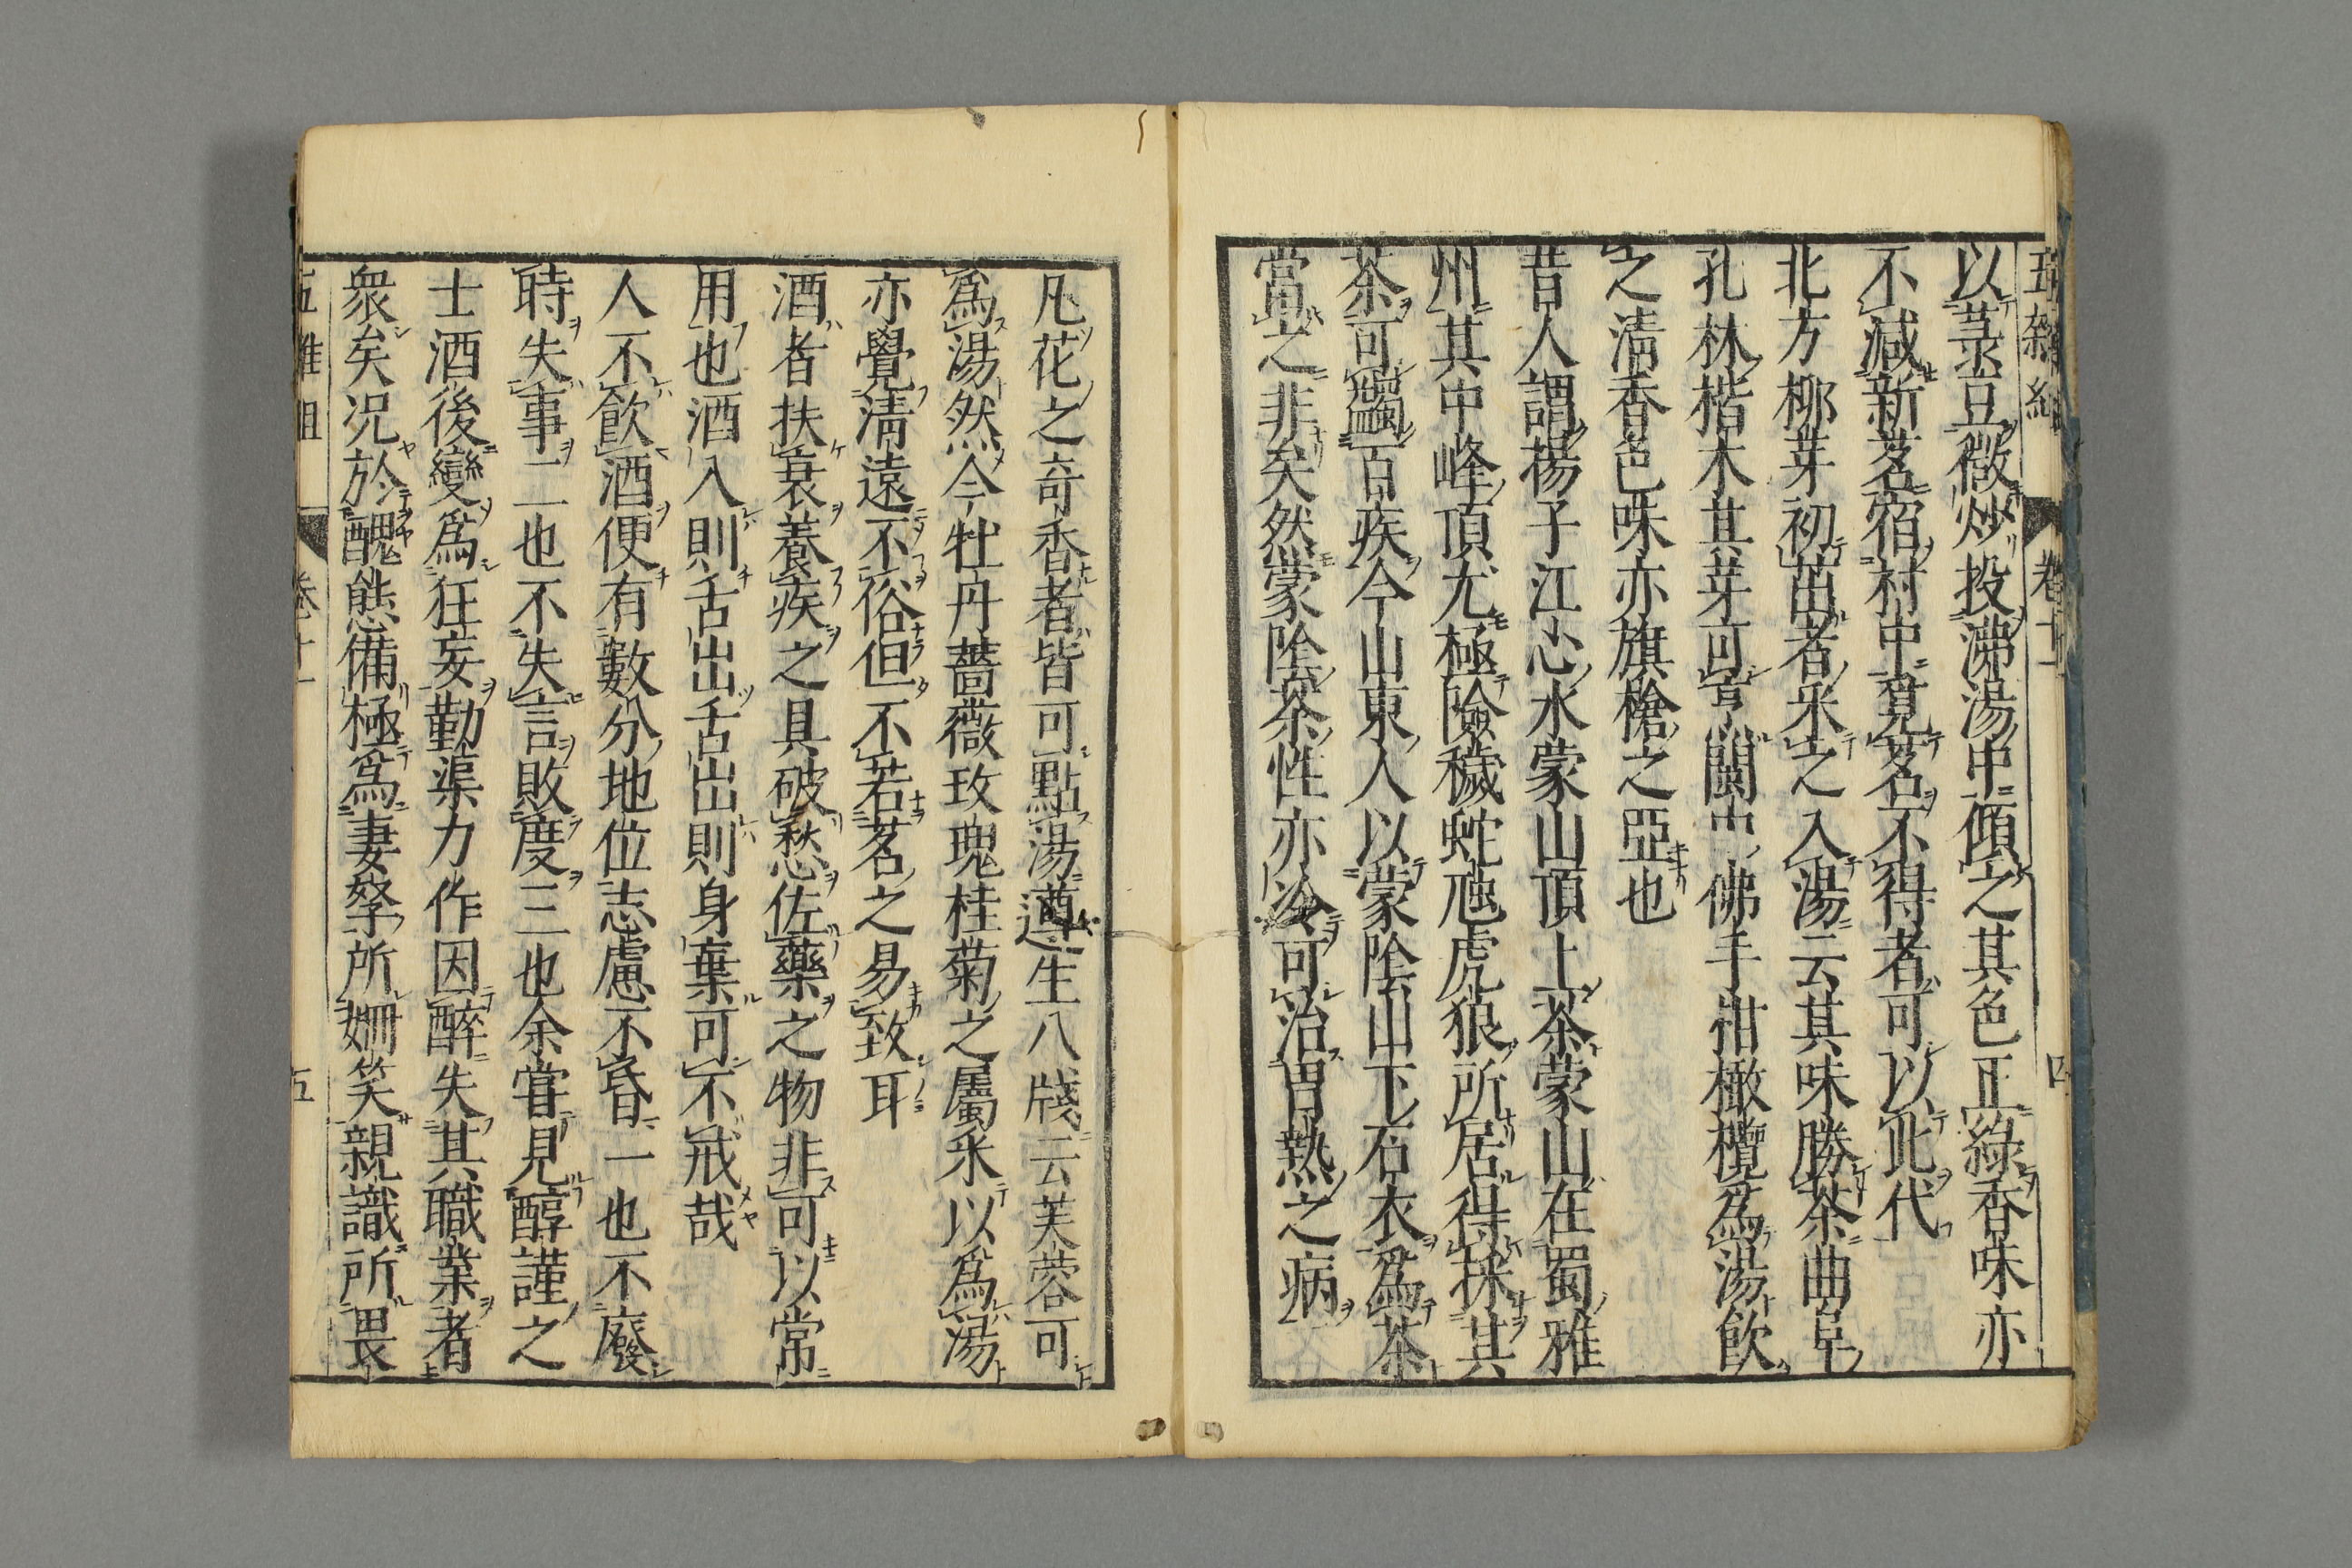 五雜組 卷十一 四
以菉豆微炒投沸湯中傾之其色正綠香味亦
不減新茗宿村中覓茗不得者可以此代
北方柳芽初茁者采之入湯云其味勝茶曲阜
孔林楷木其芽可烹閩中佛手柑橄欖爲湯飲
之清香色味亦旗槍之亞也
昔人謂揚子江心水蒙山頂上茶蒙山在蜀雅
州其中峰頂尤極險穢蛇虺虎狼所居得採其
茶可蠲百疾今山東人以蒙陰山下石衣爲茶
當之非矣然蒙陰茶性亦冷可治胃熱之病
凡花之奇香者皆可點湯遵生八牋云芙蓉可
爲湯然今牡丹薔薇玫瑰桂菊之屬采以爲湯
亦覺清遠不俗但不若茗之易致耳
酒者扶衰養疾之具破愁佐藥之物非可以常
用也酒入則舌出舌出則身棄可不戒哉
人不飲酒便有數分地位志慮不昏一也不廢
時失事二也不失言敗度三也余嘗見醇謹之
士酒後變爲狂妄勤渠力作因醉失其職業者
衆矣况於醜態備極爲妻孥所姍笑親識所畏
五雜組 卷十一 五